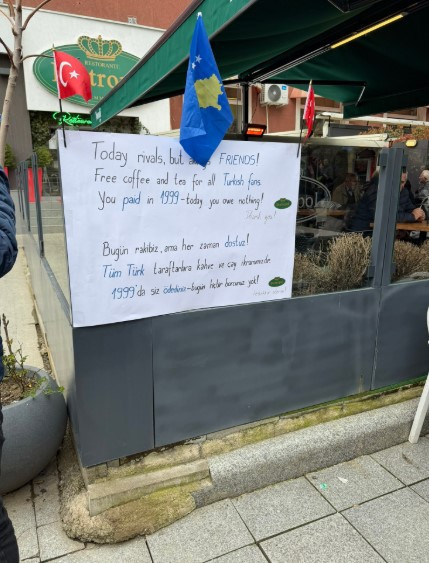 RISTORANTE
Today rivals, but FRIENDS!
Free coffee and tea for all Turkish fans.
You paid in 1999 - today you owe nothing!
Thank you!
Bugün rakibiz, ama her zaman dostuz!
Tüm Türk taraftarlara kahve ve çay ikramımızdır.
1999'da siz ödediniz - bugün hiçbir borcunuz yok!